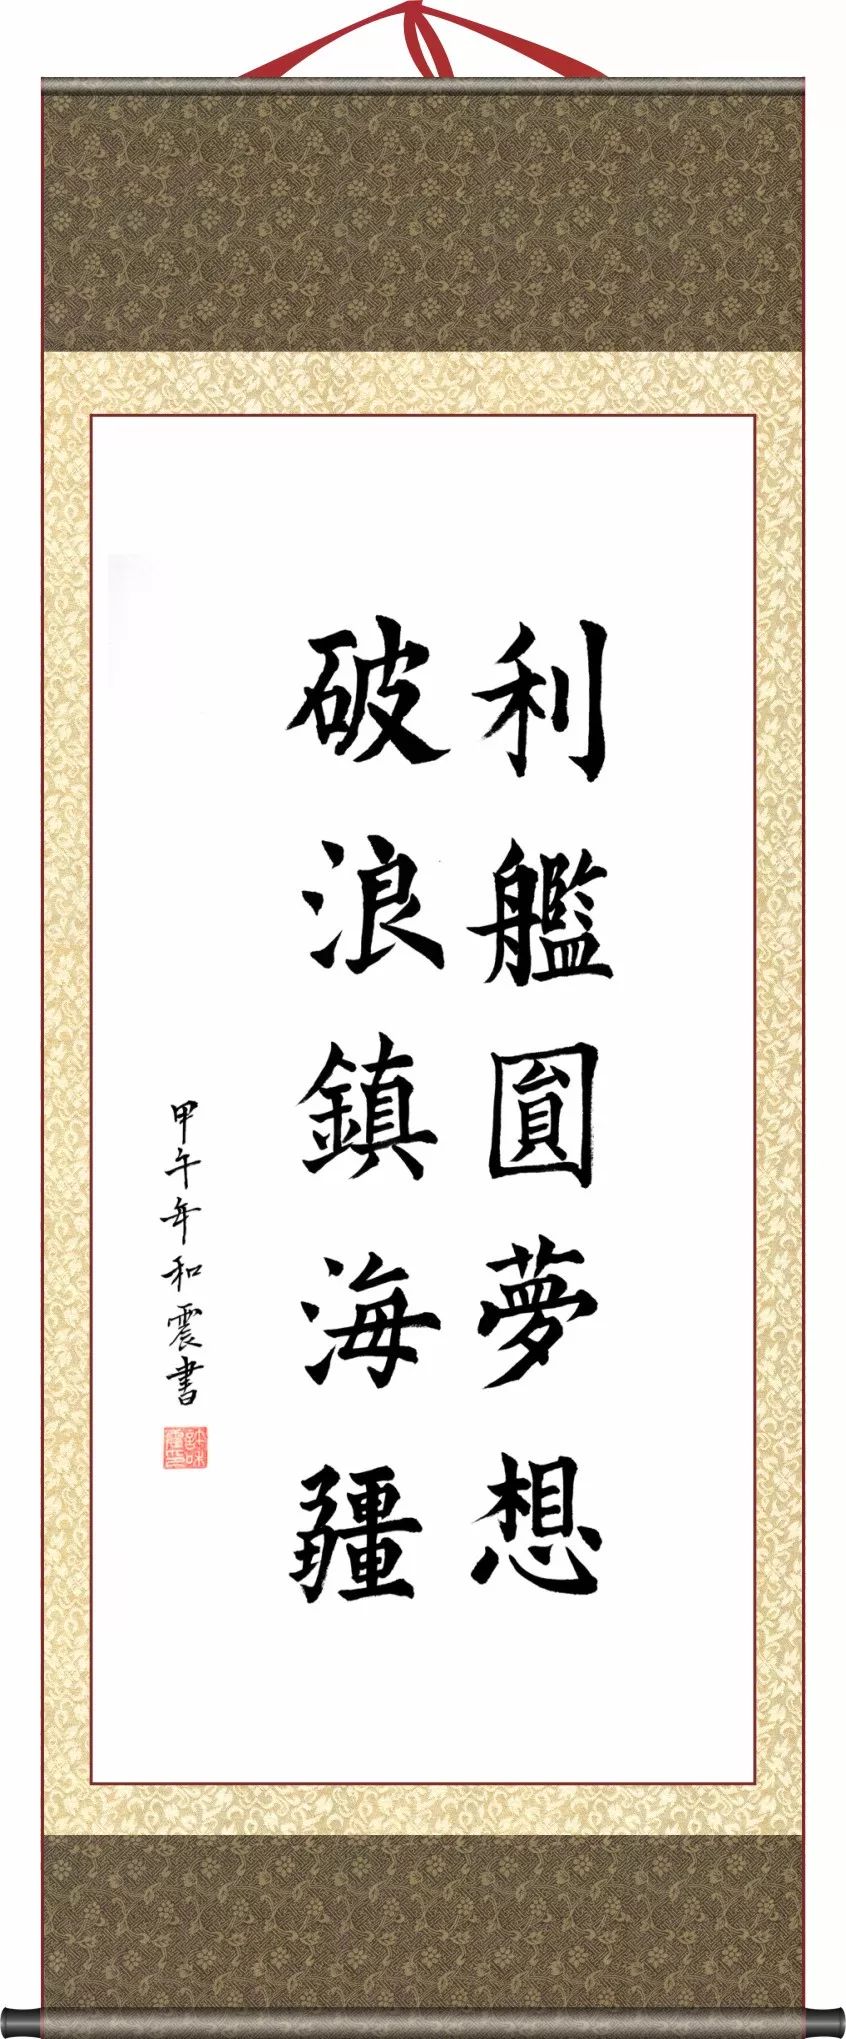 利艦圓夢想
破浪鎮海疆
甲午年和震書